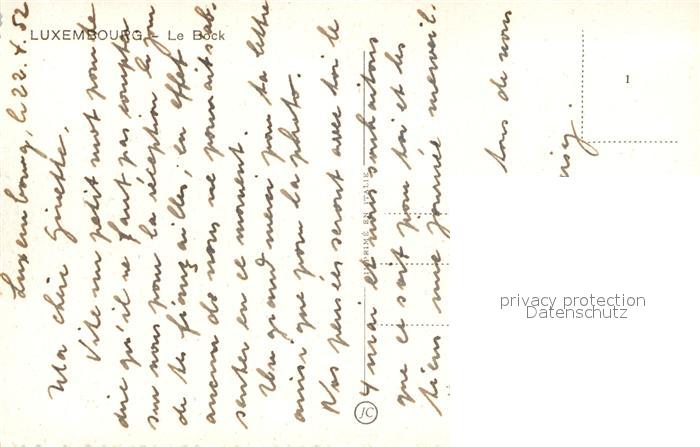 LUXEMBOURG - Le Bock
Luxembourg, le 22.4.52
Ma chère Ginette,
Vite un petit mot pour te
dire qu'il ne faut pas compter
sur nous pour la réception le jour
de tes fiançailles, en effet
aucun de nous ne pourrait s'ab-
senter en ce moment.
Un grand merci pour ta lettre
ainsi que pour la photo.
Nos pensées seront avec toi le
4 mai et nous souhaitons
que ce soit pour toi et les
tiens une journée merveil.
tous de nous
IMPRIMÉ EN ITALIE
JC
1
privacy protection
Datenschutz